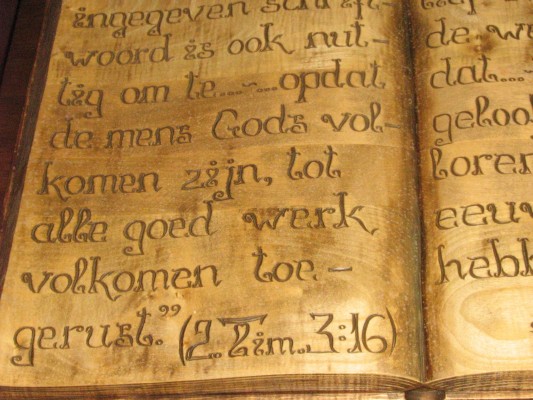 ingegeven schrift-
woord is ook nut-
tig om te...~...opdat
de mens Gods vol-
komen zijn, tot
alle goed werk
volkomen toe-
gerust.” (2.Tim.3:16)
de
dat...
geloo
loren
eeuw
hebb